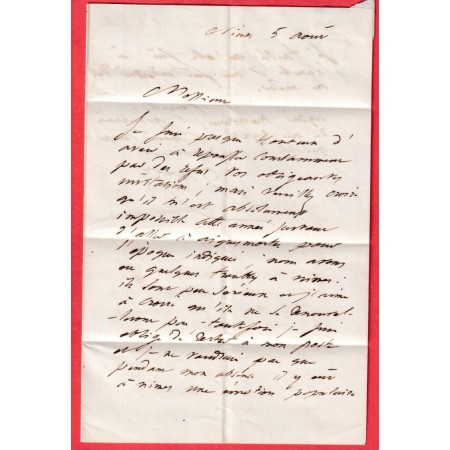 Nimes 5 août
Monsieur
Je suis presque honteux d'
avoir à repousser constamment
par des refus vos obligeantes
invitations ; mais veuillez croire
qu'il m'est absolument
impossible cette année surtout
d'aller à aiguesmortes pour
l'époque indiquée. nous avons
eu quelques troubles à nimes ;
ils sont peu sérieux et j'aime
à croire qu'ils ne se renouvel-
leront pas - toutefois je suis
obligé de rester à mon poste
et je ne voudrais pas que
pendant mon absence il y eut
à nimes une émotion populaire